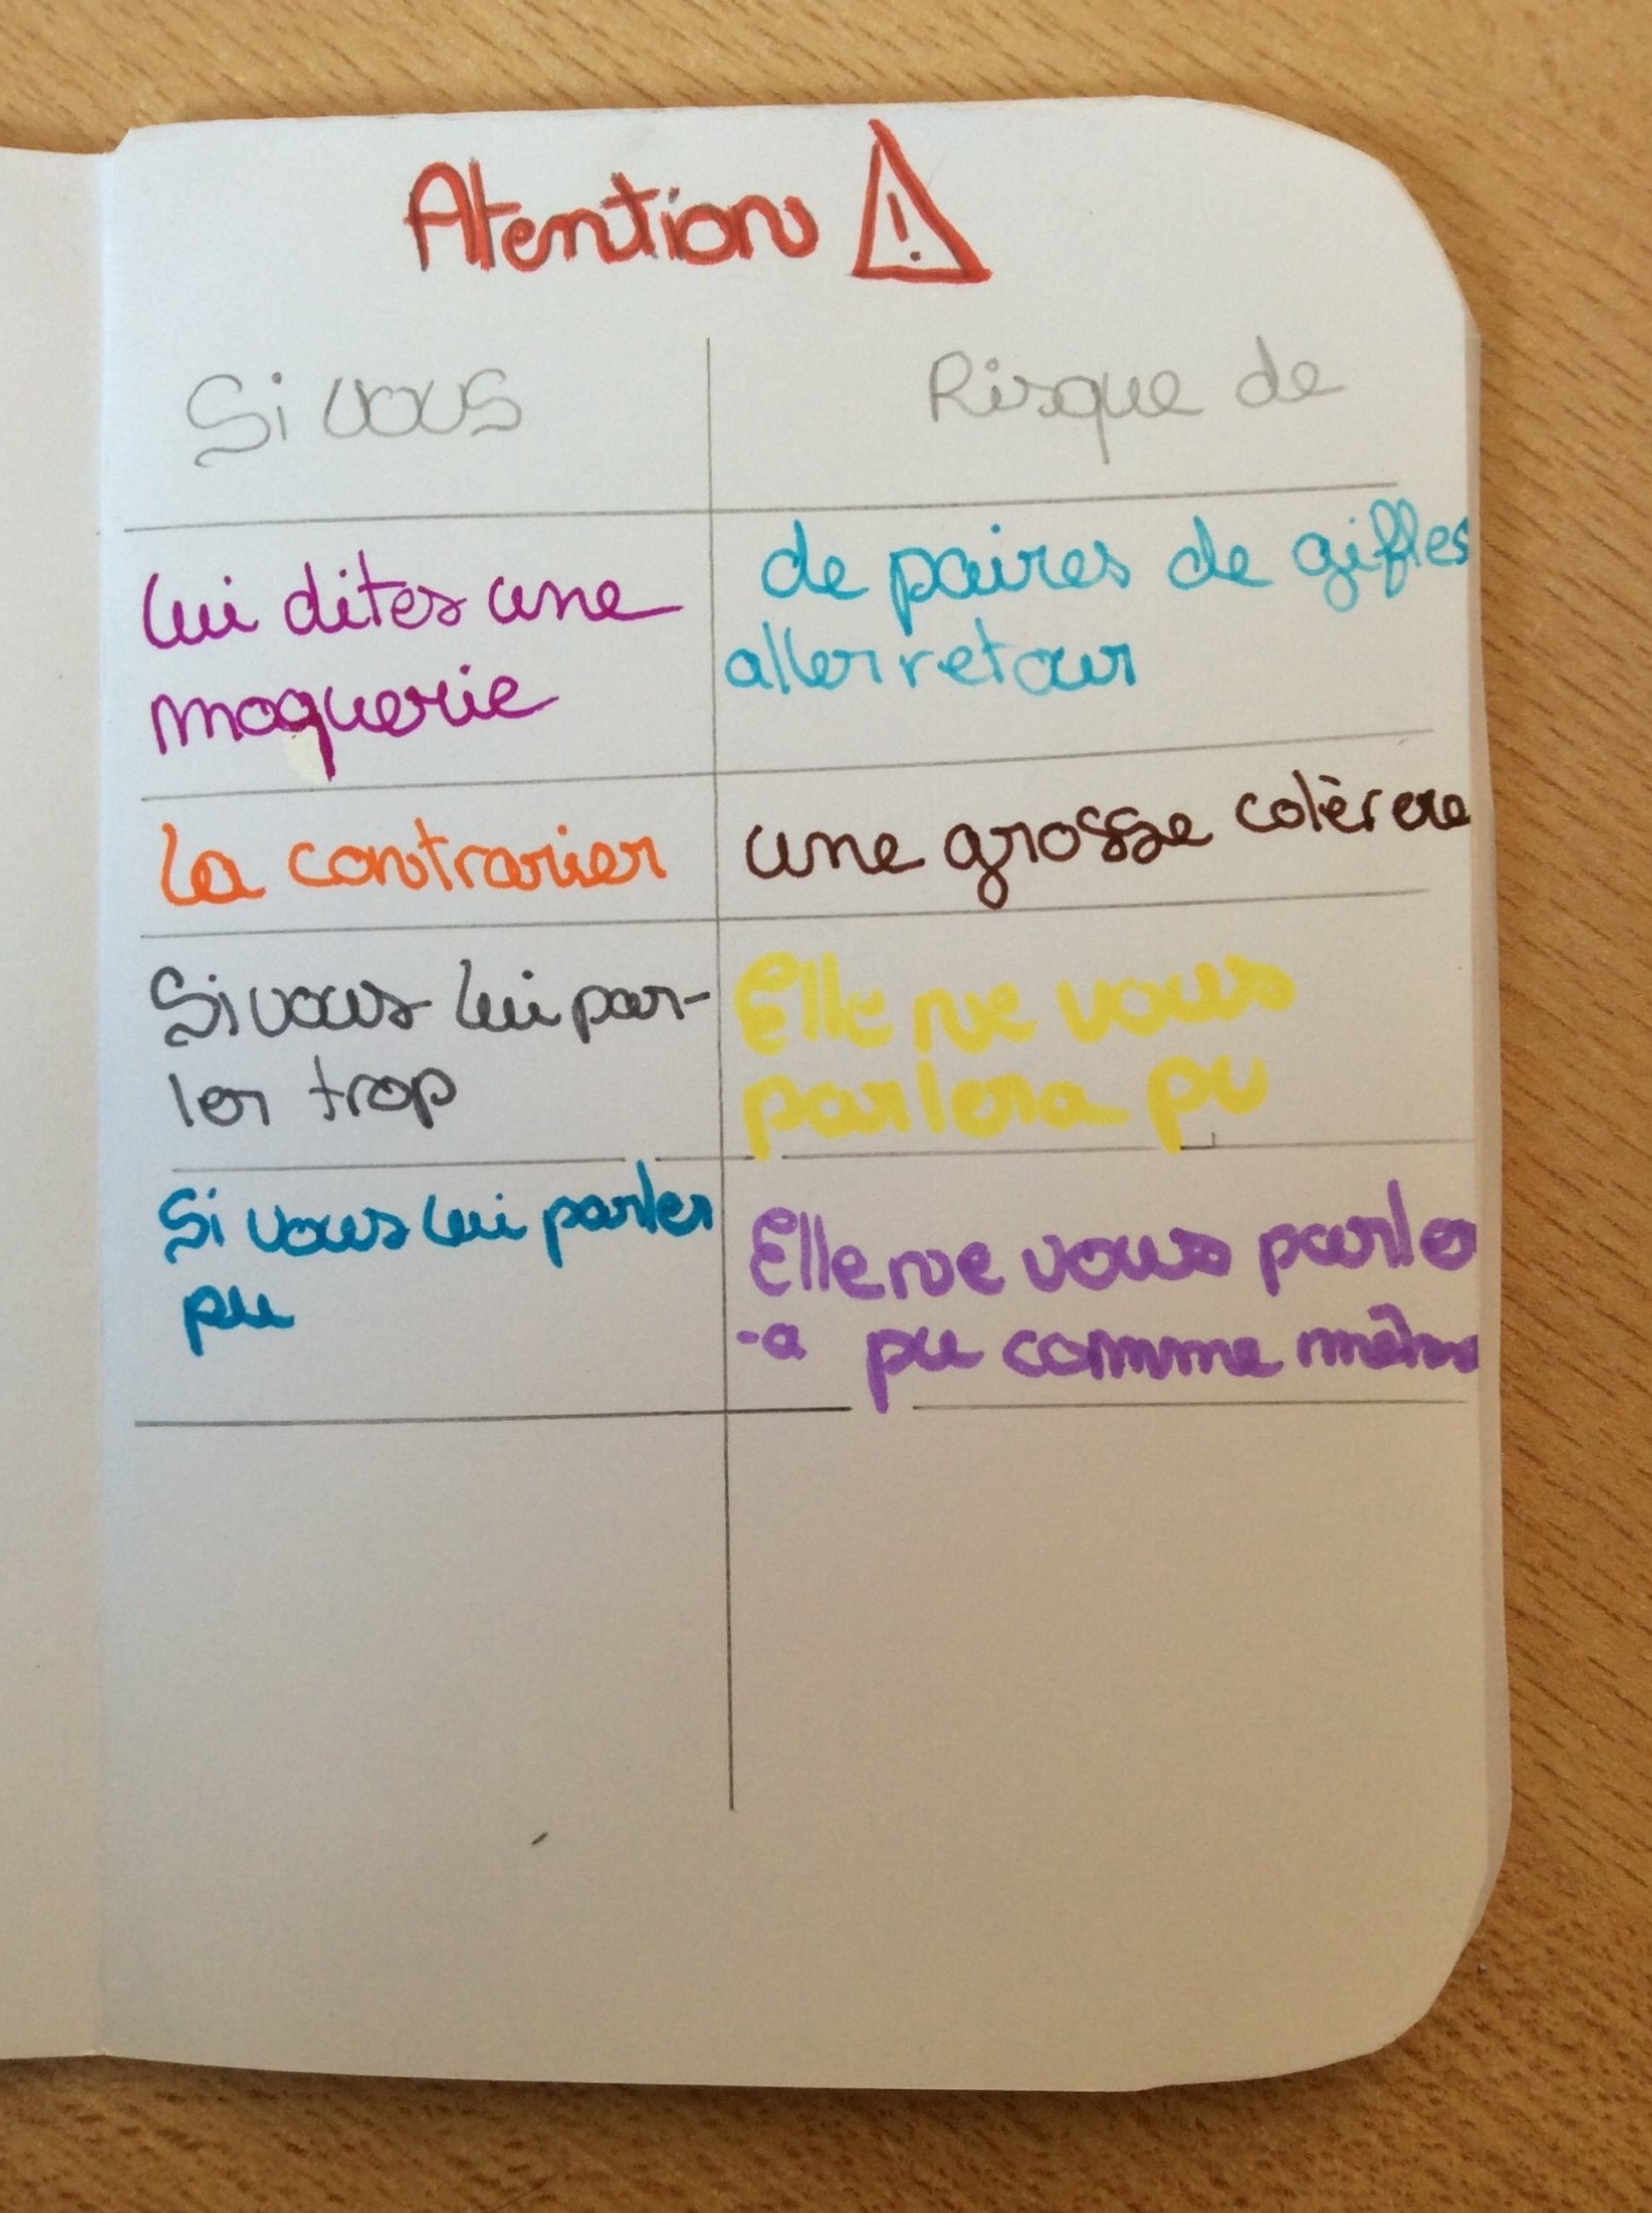 Atention
Si vous
Risque de
lui dites une
moquerie
de paires de gifles
aller retour
la contrarier
une grosse colèrere
Si vous lui par-
ler trop
Elle ne vous
parlera pu
Si vous lui parler
pu
Elle ne vous parler
-a pu comme même